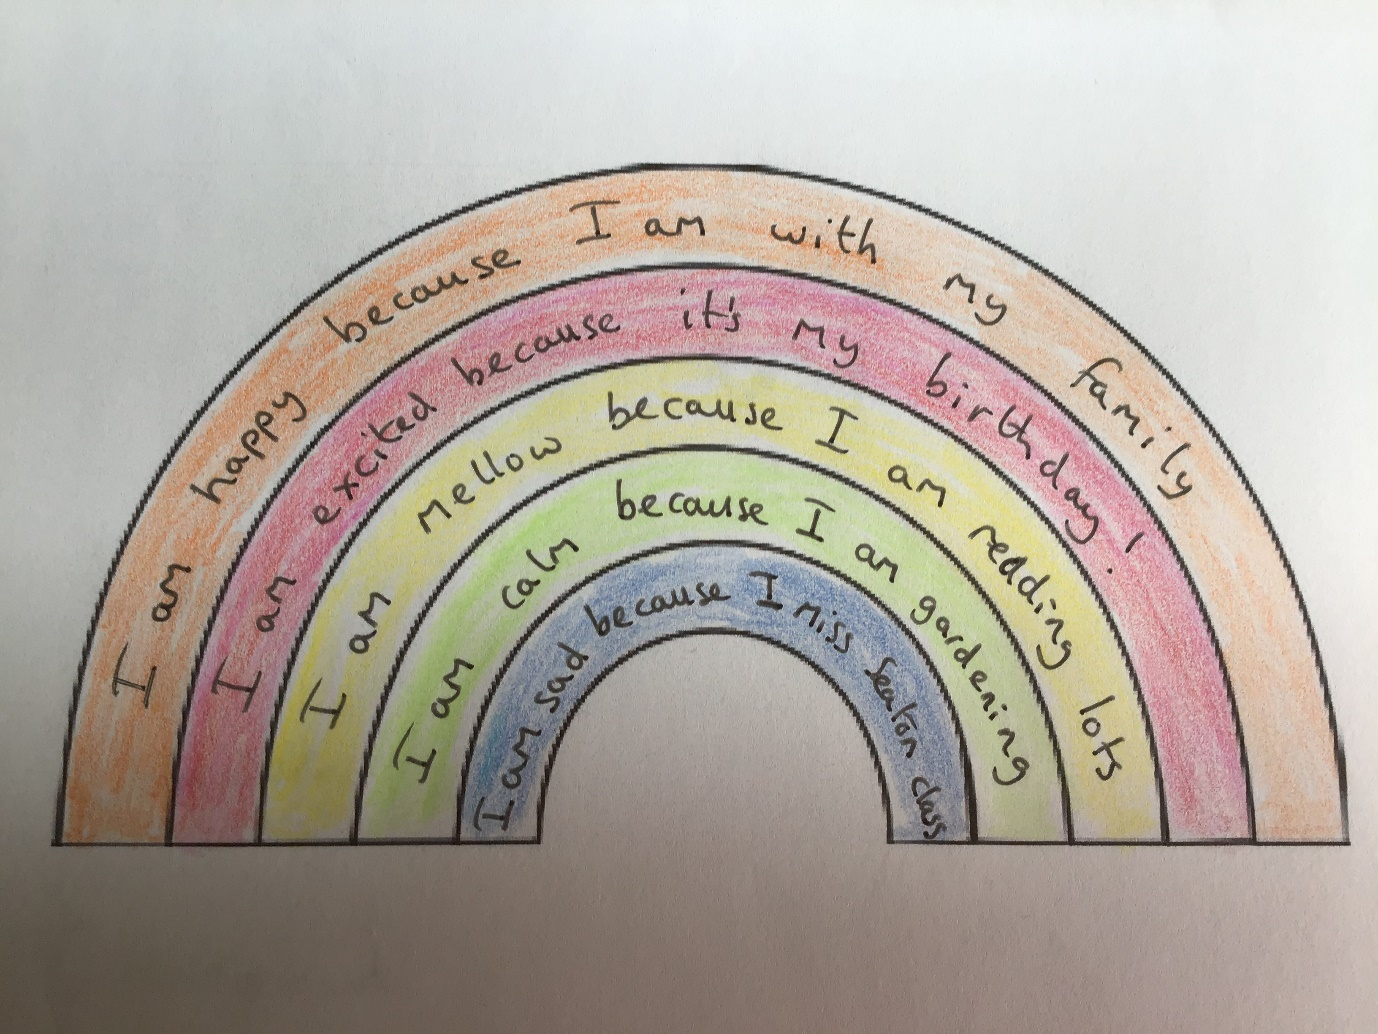 I am happy because I am with my family
I am excited because it's my birthday!
I am mellow because I am reading lots
I am calm because I am gardening
I am sad because I miss Seaton class